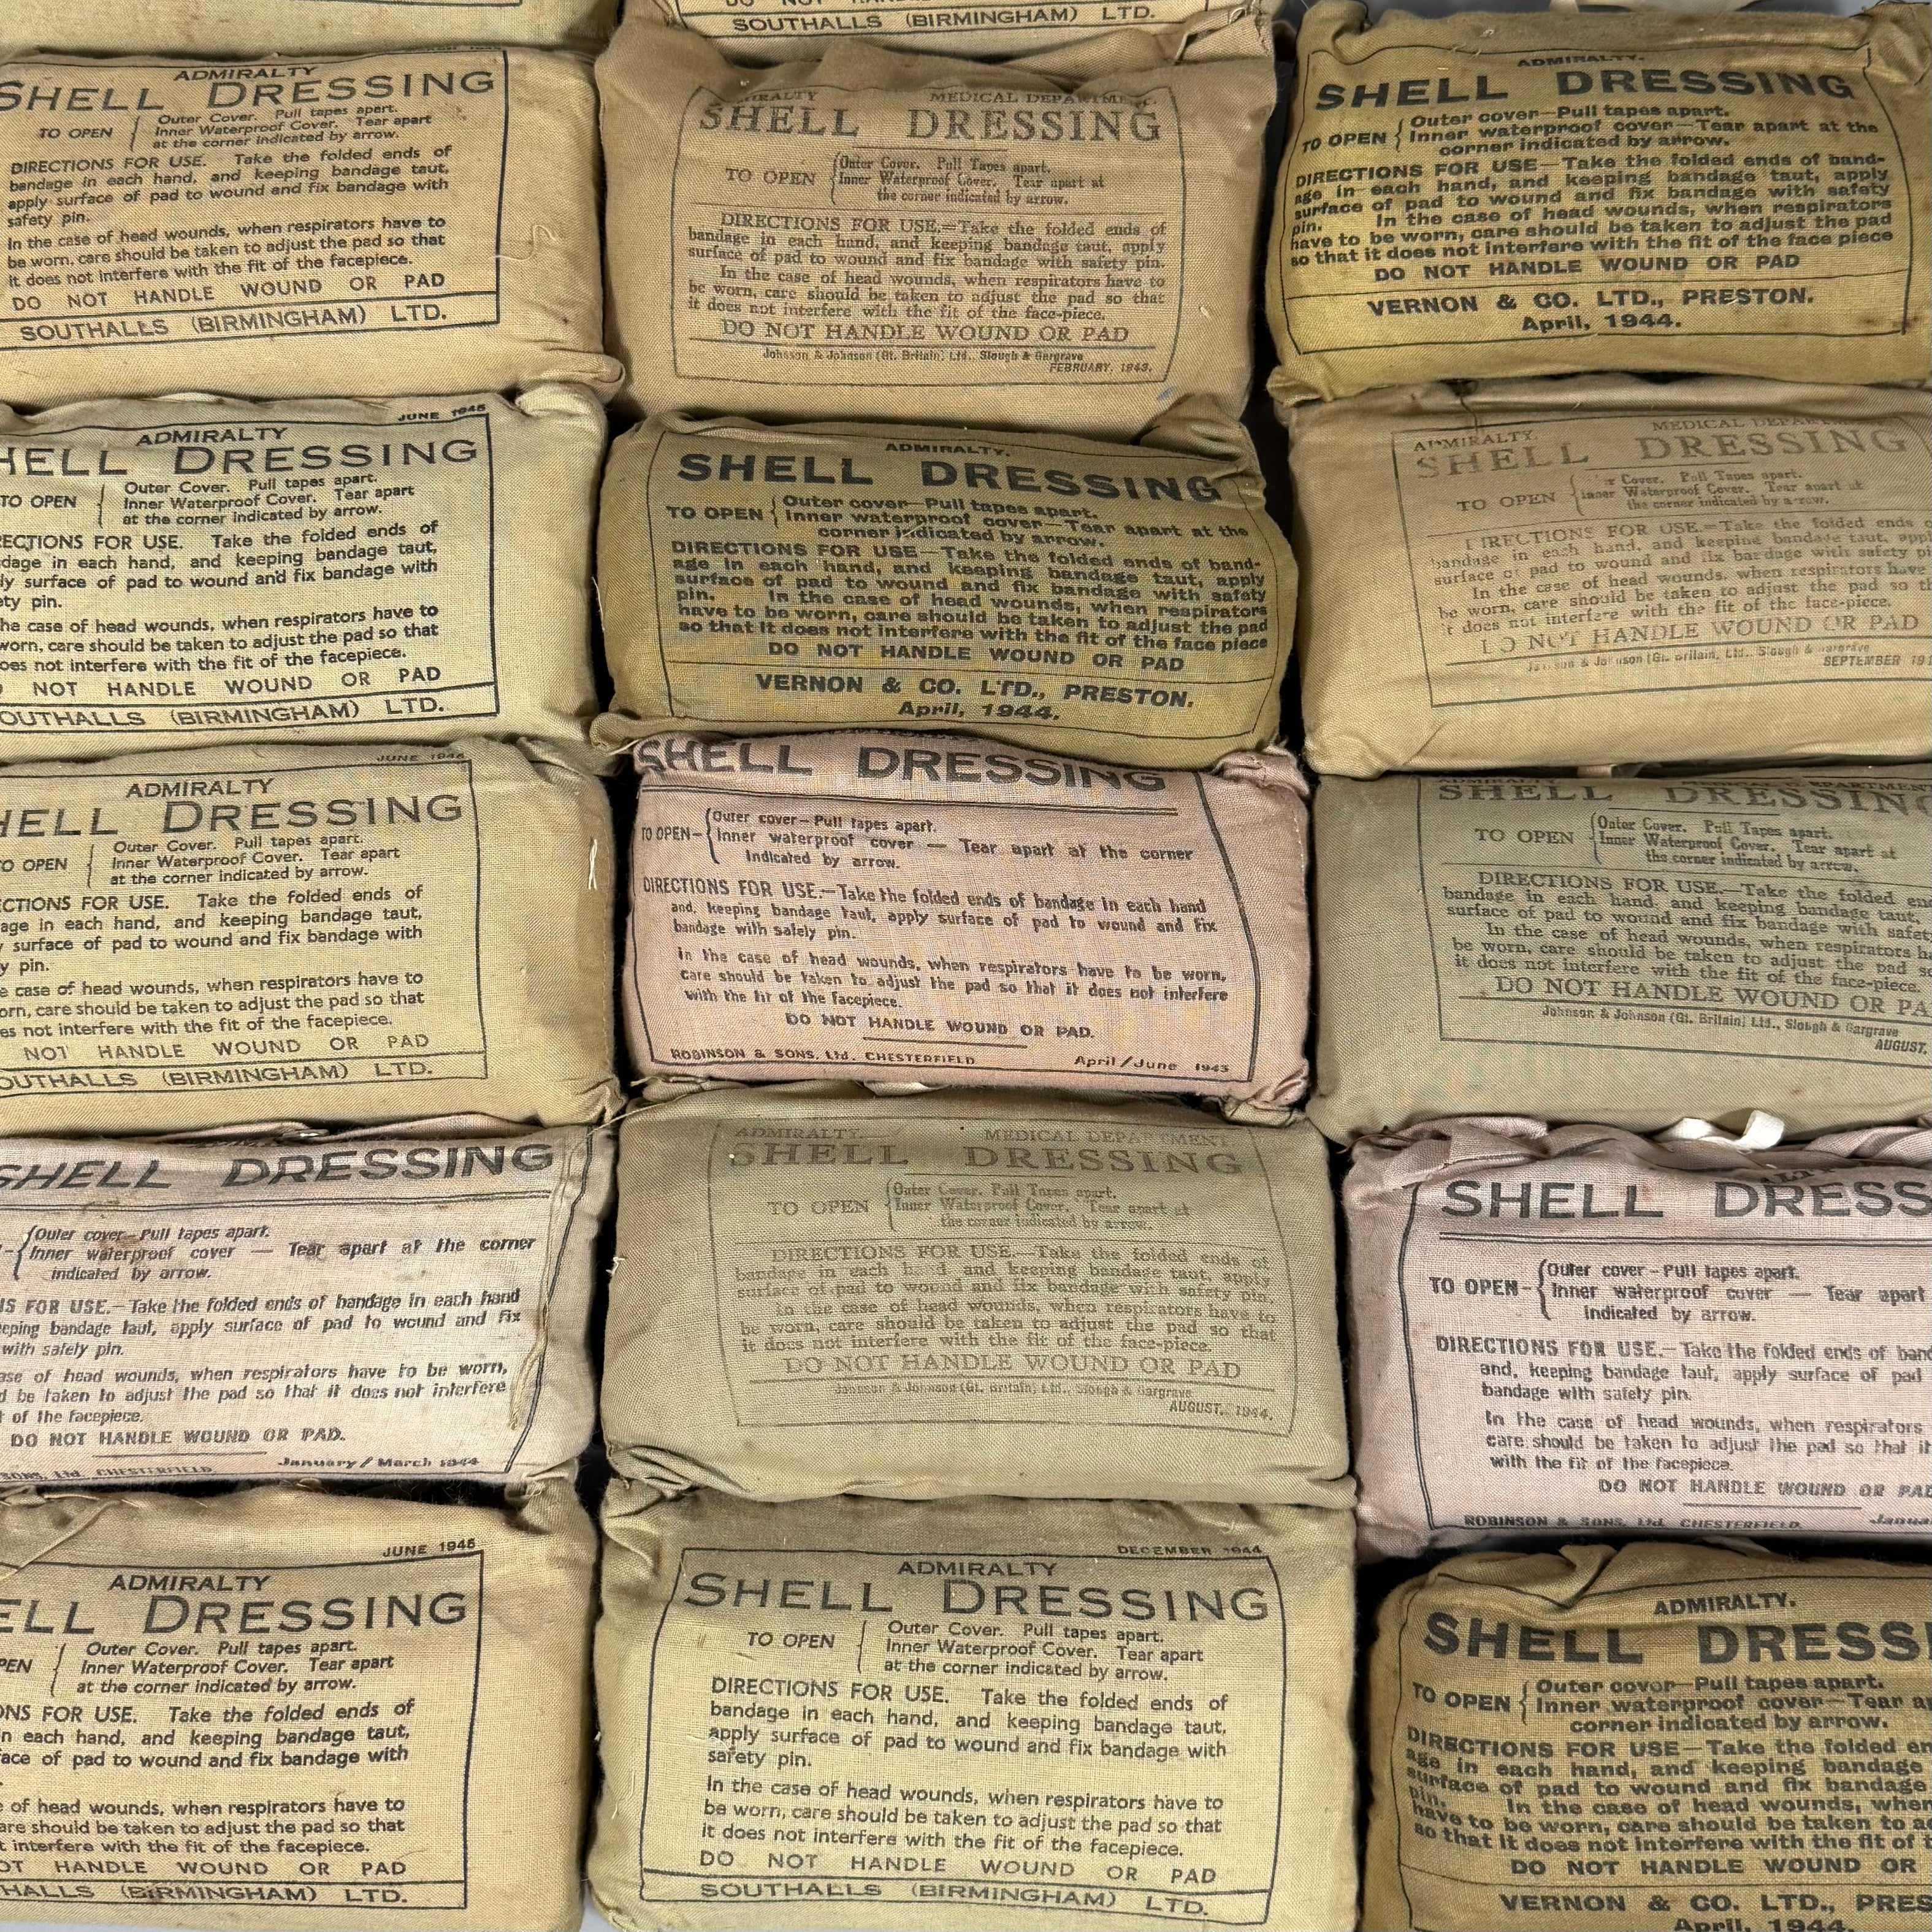 SOUTHALLS (BIRMINGHAM) LTD.
ADMIRALTY
SHELL DRESSING
TO OPEN
Outer Cover. Pull tapes apart.
Inner Waterproof Cover. Tear apart
at the corner indicated by arrow.
DIRECTIONS FOR USE. Take the folded ends of
bandage in each hand, and keeping bandage taut,
apply surface of pad to wound and fix bandage with
safety pin.
In the case of head wounds, when respirators have to
be worn, care should be taken to adjust the pad so that
it does not interfere with the fit of the facepiece.
DO NOT HANDLE WOUND OR PAD
SOUTHALLS (BIRMINGHAM) LTD.
MEDICAL DEPARTMENT.
SHELL DRESSING
TO OPEN
Outer Cover. Pull Tapes apart.
Inner Waterproof Cover. Tear apart at
the corner indicated by arrow.
DIRECTIONS FOR USE.—Take the folded ends of
bandage in each hand, and keeping bandage taut, apply
surface of pad to wound and fix bandage with safety pin.
In the case of head wounds, when respirators have to
be worn, care should be taken to adjust the pad so that
it does not interfere with the fit of the face-piece.
DO NOT HANDLE WOUND OR PAD
Johnson & Johnson (Gt. Britain) Ltd., Slough & Gargrave
FEBRUARY, 1943.
ADMIRALTY.
SHELL DRESSING
TO OPEN
Outer cover—Pull tapes apart.
Inner waterproof cover—Tear apart at the
corner indicated by arrow.
DIRECTIONS FOR USE—Take the folded ends of band-
age in each hand, and keeping bandage taut, apply
surface of pad to wound and fix bandage with safety
pin. In the case of head wounds, when respirators
have to be worn, care should be taken to adjust the pad
so that it does not interfere with the fit of the face piece
DO NOT HANDLE WOUND OR PAD
VERNON & CO. LTD., PRESTON.
April, 1944.
JUNE 1945
ADMIRALTY
HELL DRESSING
TO OPEN
Outer Cover. Pull tapes apart.
Inner Waterproof Cover. Tear apart
at the corner indicated by arrow.
ECTIONS FOR USE. Take the folded ends of
dage in each hand, and keeping bandage taut,
ly surface of pad to wound and fix bandage with
ety pin.
he case of head wounds, when respirators have to
worn, care should be taken to adjust the pad so that
oes not interfere with the fit of the facepiece.
NOT HANDLE WOUND OR PAD
OUTHALLS (BIRMINGHAM) LTD.
ADMIRALTY.
SHELL DRESSING
TO OPEN
Outer cover—Pull tapes apart.
Inner waterproof cover—Tear apart at the
corner indicated by arrow.
DIRECTIONS FOR USE—Take the folded ends of band-
age in each hand, and keeping bandage taut, apply
surface of pad to wound and fix bandage with safety
pin. In the case of head wounds, when respirators
have to be worn, care should be taken to adjust the pad
so that it does not interfere with the fit of the face piece
DO NOT HANDLE WOUND OR PAD
VERNON & CO. LTD., PRESTON.
April, 1944.
ADMIRALTY. MEDICAL
SHELL DRESSING
TO OPEN
Cover. Pull Tapes apart.
Inner Waterproof Cover. Tear apart at
the corner indicated by arrow.
DIRECTIONS FOR USE.—Take the folded ends
bandage in each hand, and keeping bandage taut, appl
surface of pad to wound and fix bandage with safety pi
In the case of head wounds, when respirators have
be worn, care should be taken to adjust the pad so th
it does not interfere with the fit of the face-piece.
DO NOT HANDLE WOUND OR PAD
Johnson & Johnson (Gt. Britain) Ltd., Slough & Gargrave
SEPTEMBER
JUNE 1945
ADMIRALTY
HELL DRESSING
O OPEN
Outer Cover. Pull tapes apart.
Inner Waterproof Cover. Tear apart
at the corner indicated by arrow.
CTIONS FOR USE. Take the folded ends of
age in each hand, and keeping bandage taut,
surface of pad to wound and fix bandage with
y pin.
e case of head wounds, when respirators have to
orn, care should be taken to adjust the pad so that
es not interfere with the fit of the facepiece.
NOT HANDLE WOUND OR PAD
OUTHALLS (BIRMINGHAM) LTD.
SHELL DRESSING
TO OPEN—
Outer cover—Pull tapes apart.
Inner waterproof cover — Tear apart at the corner
indicated by arrow.
DIRECTIONS FOR USE.—Take the folded ends of bandage in each hand
and, keeping bandage taut, apply surface of pad to wound and fix
bandage with safety pin.
In the case of head wounds, when respirators have to be worn,
care should be taken to adjust the pad so that it does not interfere
with the fit of the facepiece.
DO NOT HANDLE WOUND OR PAD.
ROBINSON & SONS, Ltd. CHESTERFIELD April/June 1943
SHELL DRESSING
TO OPEN
Outer Cover. Pull Tapes apart.
Inner Waterproof Cover. Tear apart at
the corner indicated by arrow.
DIRECTIONS FOR USE.—Take the folded end
bandage in each hand, and keeping bandage taut,
surface of pad to wound and fix bandage with safet
In the case of head wounds, when respirators h
be worn, care should be taken to adjust the pad so
it does not interfere with the fit of the face-piece.
DO NOT HANDLE WOUND OR PA
Johnson & Johnson (Gt. Britain) Ltd., Slough & Gargrave
AUGUST,
SHELL DRESSING
Outer cover—Pull tapes apart.
Inner waterproof cover — Tear apart at the corner
indicated by arrow.
S FOR USE.—Take the folded ends of bandage in each hand
eping bandage taut, apply surface of pad to wound and fix
with safety pin.
ase of head wounds, when respirators have to be worn,
d be taken to adjust the pad so that it does not interfere
of the facepiece.
DO NOT HANDLE WOUND OR PAD.
SONS, Ltd. CHESTERFIELD January/March 1944
ADMIRALTY. MEDICAL DEPARTMENT.
SHELL DRESSING
TO OPEN
Outer Cover. Pull Tapes apart.
Inner Waterproof Cover. Tear apart at
the corner indicated by arrow.
DIRECTIONS FOR USE.—Take the folded ends of
bandage in each hand, and keeping bandage taut, apply
surface of pad to wound and fix bandage with safety pin.
In the case of head wounds, when respirators have to
be worn, care should be taken to adjust the pad so that
it does not interfere with the fit of the face-piece.
DO NOT HANDLE WOUND OR PAD
Johnson & Johnson (Gt. Britain) Ltd., Slough & Gargrave
AUGUST, 1944.
SHELL DRESS
TO OPEN—
Outer cover—Pull tapes apart.
Inner waterproof cover — Tear apart
indicated by arrow.
DIRECTIONS FOR USE.—Take the folded ends of band
and, keeping bandage taut, apply surface of pad
bandage with safety pin.
In the case of head wounds, when respirators
care should be taken to adjust the pad so that it
with the fit of the facepiece.
DO NOT HANDLE WOUND OR PAD
ROBINSON & SONS, Ltd. CHESTERFIELD. Janua
JUNE 1945
ADMIRALTY
ELL DRESSING
PEN
Outer Cover. Pull tapes apart.
Inner Waterproof Cover. Tear apart
at the corner indicated by arrow.
ONS FOR USE. Take the folded ends of
n each hand, and keeping bandage taut,
ace of pad to wound and fix bandage with
of head wounds, when respirators have to
are should be taken to adjust the pad so that
t interfere with the fit of the facepiece.
OT HANDLE WOUND OR PAD
HALLS (BIRMINGHAM) LTD.
DECEMBER 1944
ADMIRALTY
SHELL DRESSING
TO OPEN
Outer Cover. Pull tapes apart.
Inner Waterproof Cover. Tear apart
at the corner indicated by arrow.
DIRECTIONS FOR USE. Take the folded ends of
bandage in each hand, and keeping bandage taut,
apply surface of pad to wound and fix bandage with
safety pin.
In the case of head wounds, when respirators have to
be worn, care should be taken to adjust the pad so that
it does not interfere with the fit of the facepiece.
DO NOT HANDLE WOUND OR PAD
SOUTHALLS (BIRMINGHAM) LTD.
ADMIRALTY.
SHELL DRESSI
TO OPEN
Outer cover—Pull tapes apart.
Inner waterproof cover—Tear a
corner indicated by arrow.
DIRECTIONS FOR USE—Take the folded en
age in each hand, and keeping bandage
surface of pad to wound and fix bandage
pin. In the case of head wounds, when
have to be worn, care should be taken to a
so that it does not interfere with the fit of t
DO NOT HANDLE WOUND OR
VERNON & CO. LTD., PRES
April, 1944